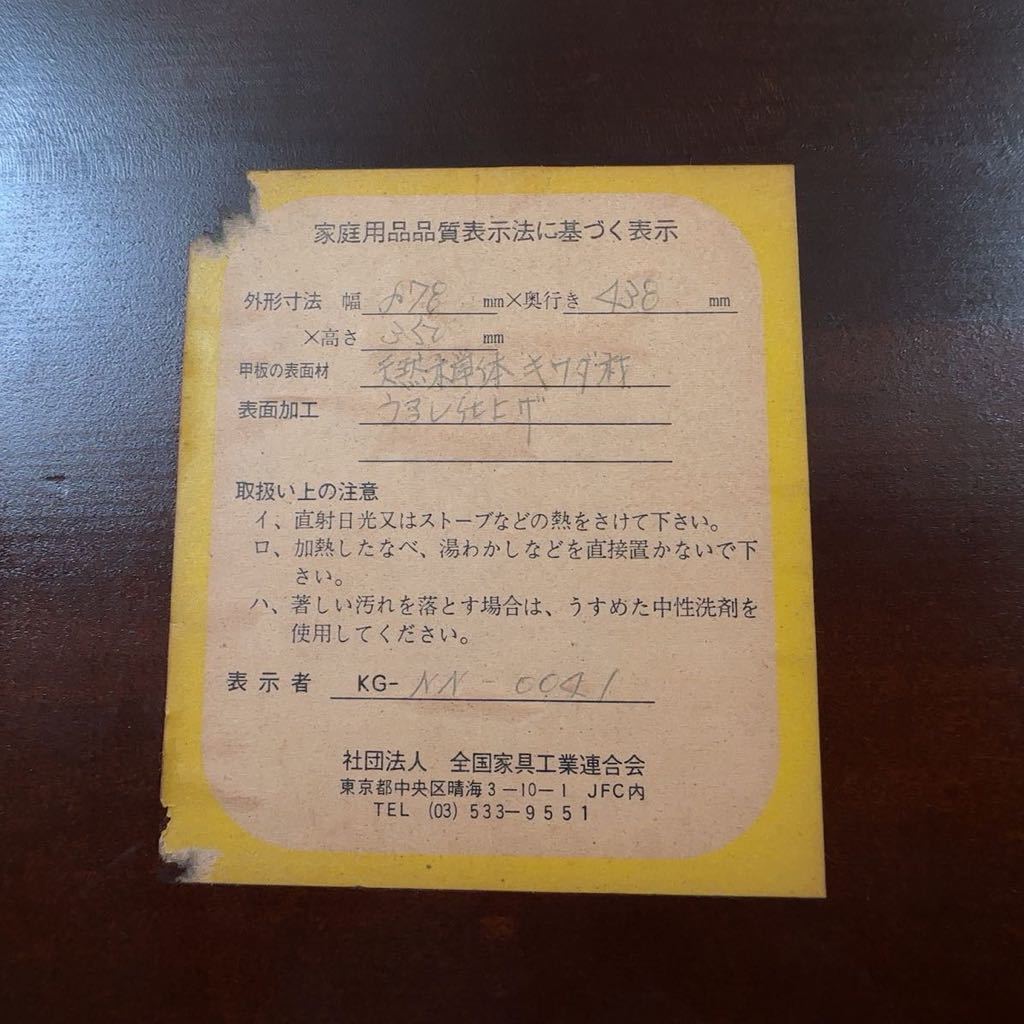 家庭用品品質表示法に基づく表示
外形寸法 幅 mm×奥行き 438 mm
×高さ 350 mm
甲板の表面材 天然木単体 キワダ材
表面加工 うるし仕上げ
取扱い上の注意
イ、直射日光又はストーブなどの熱をさけて下さい。
ロ、加熱したなべ、湯わかしなどを直接置かないで下
さい。
ハ、著しい汚れを落とす場合は、うすめた中性洗剤を
使用してください。
表示者 KG-NN-0041
社団法人 全国家具工業連合会
東京都中央区晴海3-10-1 JFC内
TEL (03) 533-9551